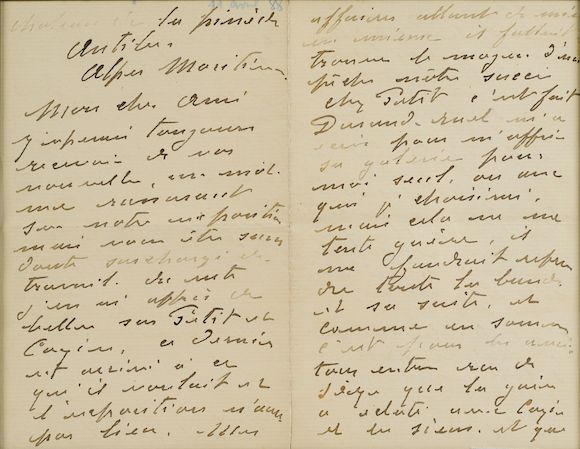 chateau de la pinède
Antibes.
Alpes Maritimes.
Mon cher ami
j'espérais toujours
recevoir de vos
nouvelles, un mot
me rassurant
sur notre exposition
mais vous êtes sans
doute surchargé de
travail. du reste
j'en ai appris de
belles sur Petit et
Cazin, ce dernier
est arrivé à ce
qu'il voulait et
l'exposition n'aura
pas lieu.
affaires allant de
en et fallait
trouver le moyen d'em
pêcher notre succès
chez Petit c'est fait
Durand-Ruel m'a
écrit pour m'offrir
sa galerie pour
moi seul, ou avec
qui je choisirai,
mais cela ne me
tente guère, il
me faudrait
de toute la bande
et sa suite, et
comme un
c'est pour
tous entre eux
que la
a éclaté entre Cazin
et les siens. et que